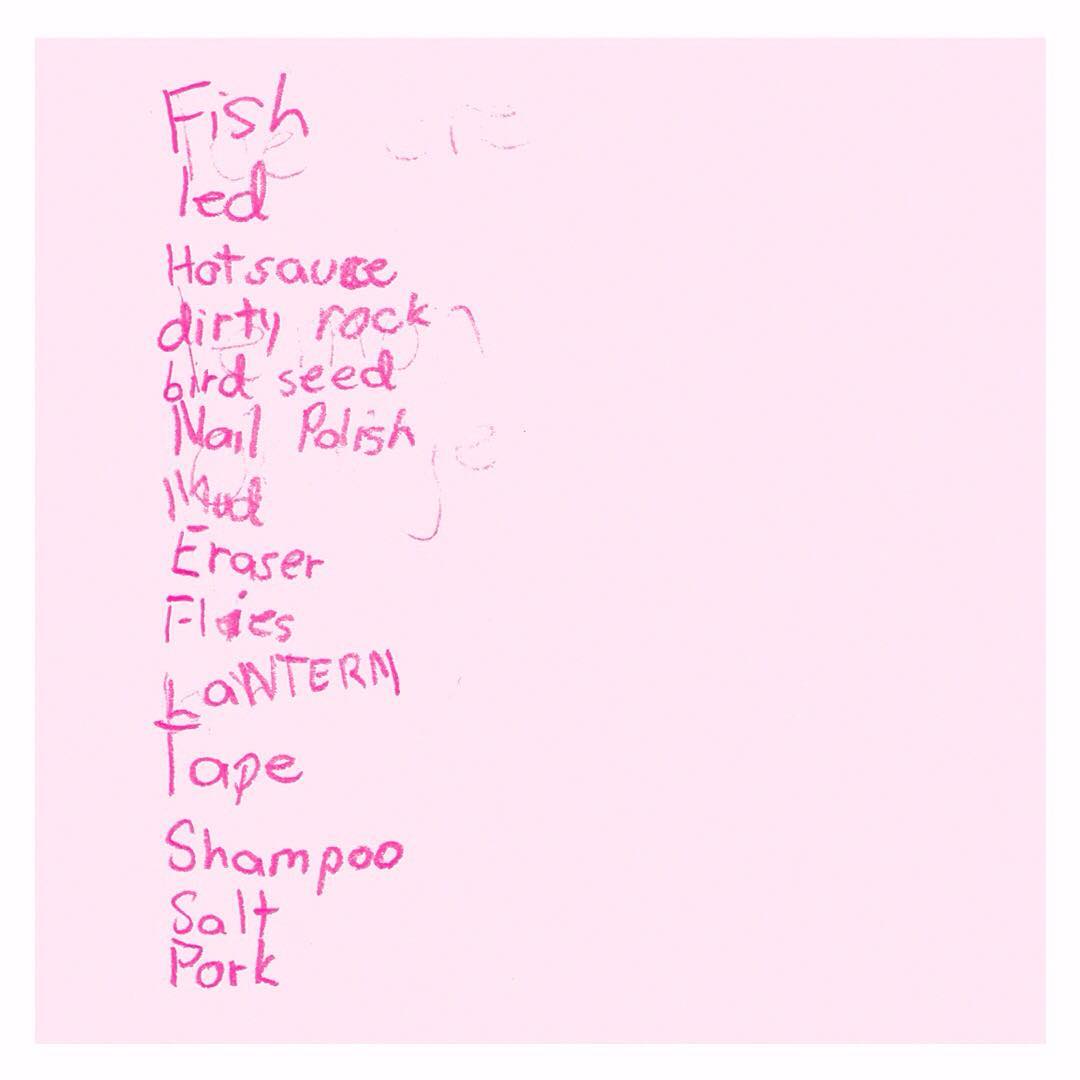 Fish
led
Hot sauce
dirty rock
bird seed
Nail Polish
Mud
Eraser
Flies
LaNTERN
Tape
Shampoo
Salt
Pork